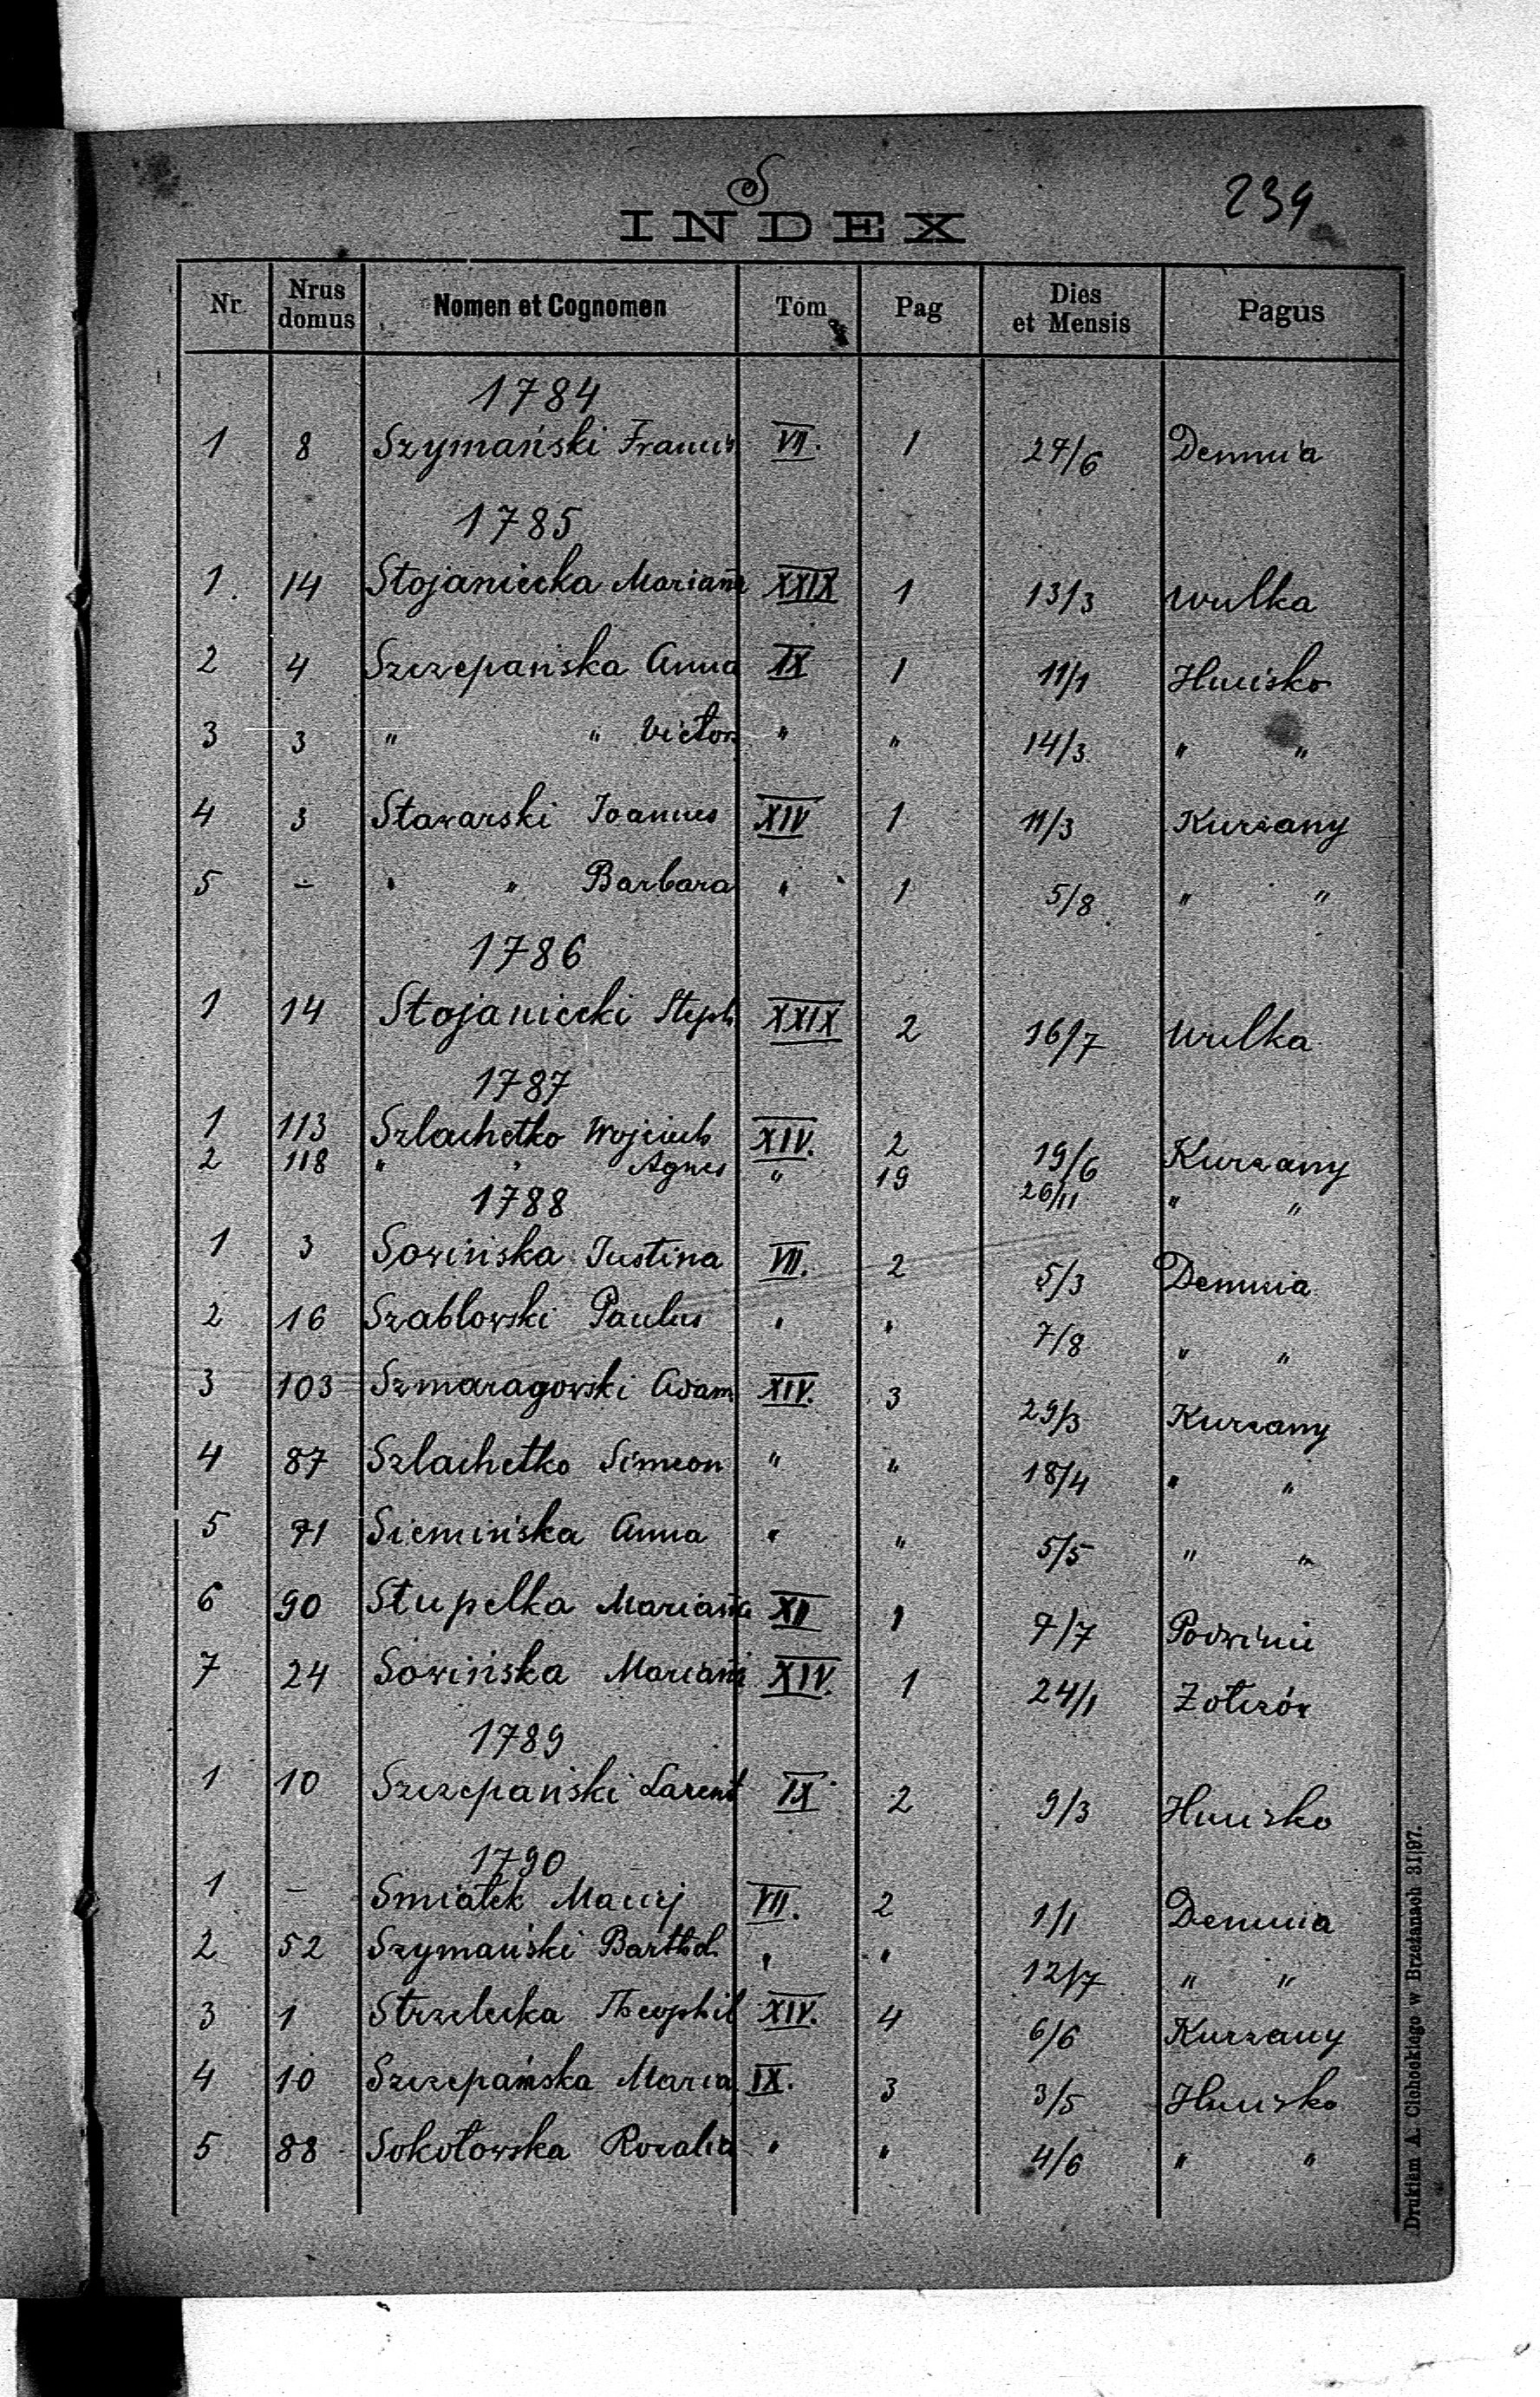 S
239
INDEX
Nr. Nrus domus Nomen et Cognomen Tom Pag Dies et Mensis Pagus
1784
1 8 Szymański Francis VII. 1 27/6 Demnia
1785
1. 14 Stojaniecka Mariana XXIX 1 13/3 Wulka
2 4 Szczepańska Anna IX 1 11/1 Hucisko
3 3 " " Victor " " 14/3 " "
4 3 Stawarski Joannes XIV 1 11/3 Kurzany
5 - " " Barbara " 1 5/8 " "
1786
1 14 Stojaniecki Steph XXIX 2 16/7 Wulka
1787
1 113 Szlachetko Wojciech XIV. 2 19/6 Kurzany
2 118 " " Agnes " 19 26/11 " "
1788
1 3 Sowińska Justina VII. 2 5/3 Demnia
2 16 Szablowski Paulus " " 7/8 " "
3 103 Szmaragowski Adam XIV. 3 29/3 Kurzany
4 87 Szlachetko Simeon " " 18/4 " "
5 71 Siemińska Anna " " 5/5 " "
6 90 Stupelka Mariana 1 7/7
7 24 Sowińska Mariana XIV. 1 24/1
1789
1 10 Szczepański Larent IX 2 9/3 Hucisko
1790
1 - Smiatek Maciej VII. 2 1/1 Demnia
2 52 Szymański Barthol. " " 12/7 " "
3 1 Strzelecka Theophil XIV. 4 6/6 Kurzany
4 10 Szczepańska Maria IX. 3 3/5 Hucisko
5 88 Sokołowska Rozalia " " 4/6 " "
Drukiem A. Cichockiego w Brzeżanach 31|97.